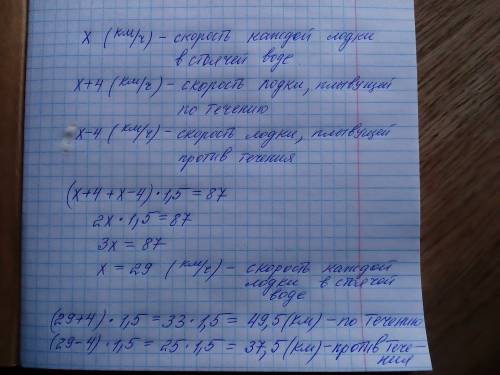 x (км/ч) – скорость каждой лодки
в стоячей воде
x+4 (км/ч) – скорость лодки, плывущей
по течению
x-4 (км/ч) – скорость лодки, плывущей
против течения
(x+4+x-4)·1,5=87
2x·1,5=87
3x=87
x=29 (км/ч) – скорость каждой
лодки в стоячей
воде
(29+4)·1,5=33·1,5=49,5(км)-по течению
(29-4)·1,5=25·1,5=37,5(км)-против тече-
ния